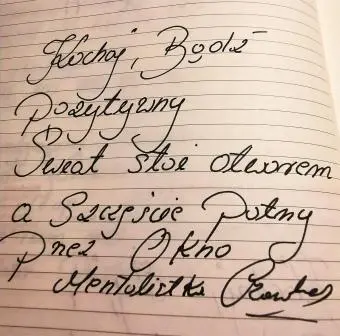 Kochaj, Bądź
Pozytywny
Świat stoi otworem
a Szczęście Patrzy
Przez Okno
Mentalistka